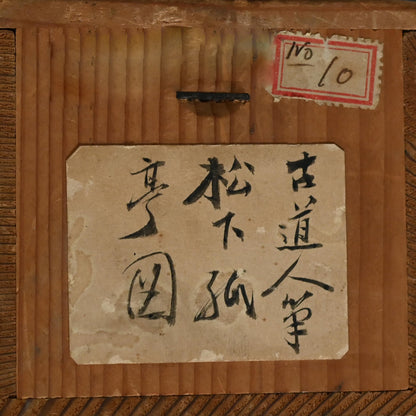 古道人筆
松下孤
亭図
No 10